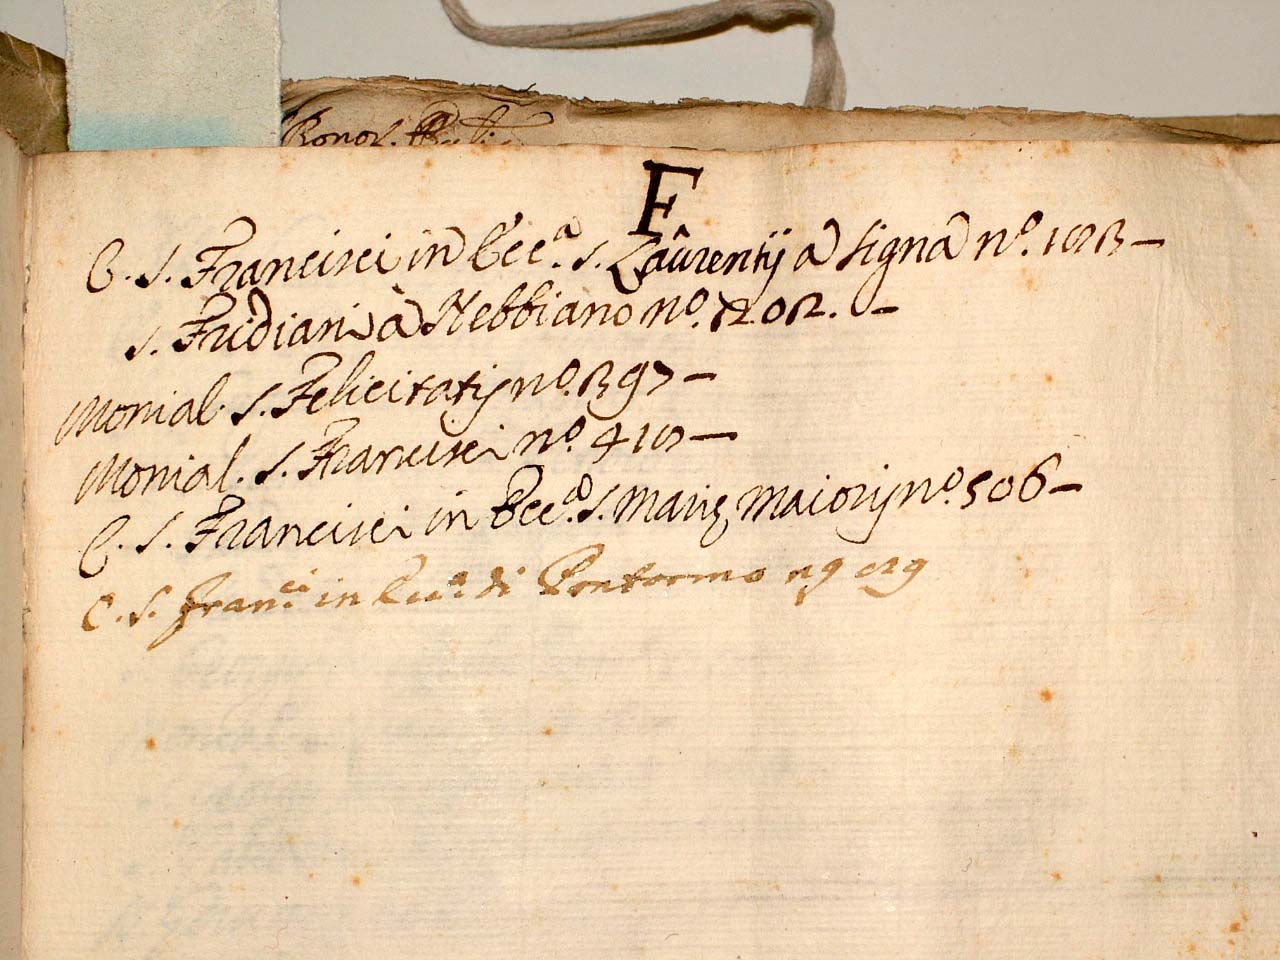 F
C. S. Francisci in Ecc.ª S. Laurentij à Signa n.º
S. Fridiani à Nebbiano n.º
Monial. S. Felicitatis n.º 397 –
Monial. S. Francisci n.º
C. S. Francisci in Ecc.ª S. Marię Maioris n.º 506 –
C. S. Fran.ci in di Pontormo